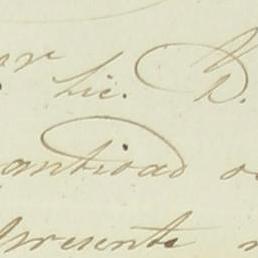 Lic. D.
antidad
presente